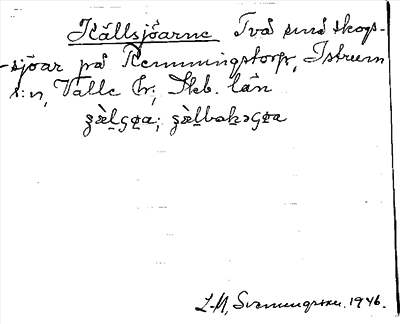 Källsjöarne Två små skogs-
-sjöar på Remmingstorp, Istrum
s:n, Valle hr, Skb. län
L-M, Svenungsson. 1946.